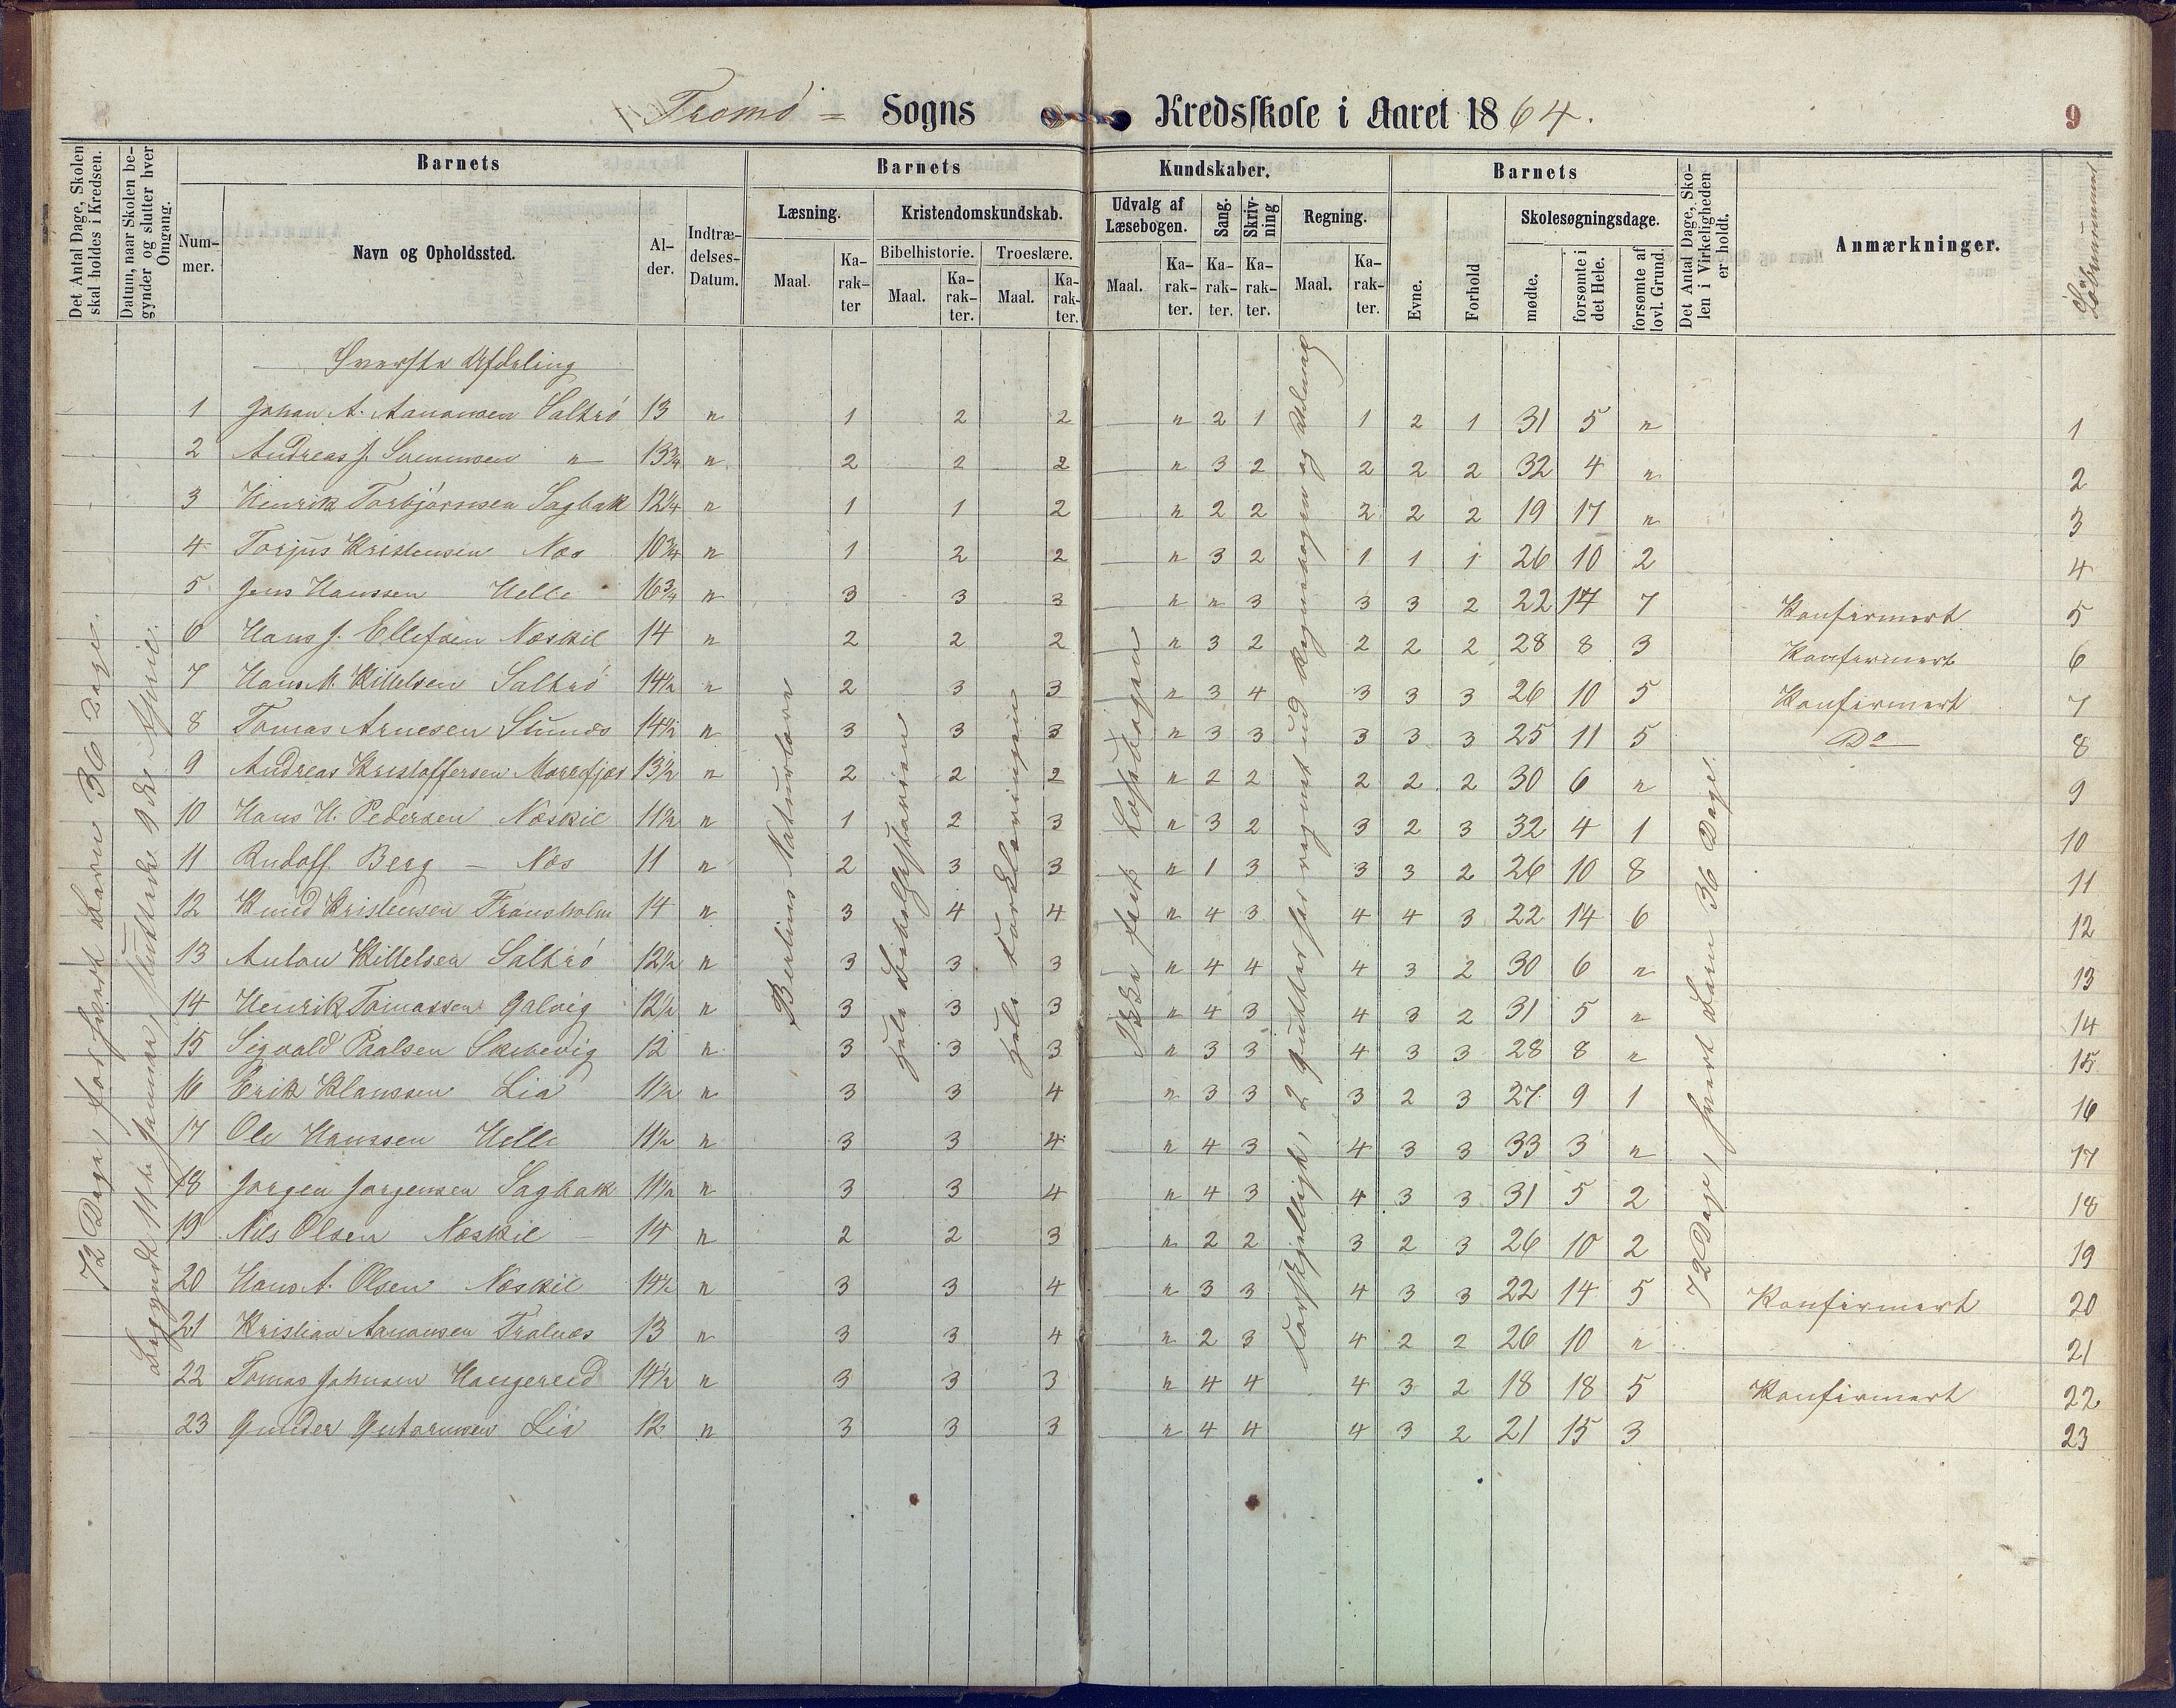 Tromø = Sogns Kredsskole i Aaret 1864.
9
Det Antal Dage, Skolen skal holdes i Kredsen.
Datum, naar Skolen begynder og slutter hver Omgang.
Barnets
Barnets
Kundskaber.
Barnets
Det Antal Dage, Skolen i Virkeligheden er holdt.
Anmærkninger.
Løbenummer
Nummer.
Navn og Opholdssted.
Alder.
Indtrædelses-Datum.
Læsning.
Kristendomskundskab.
Udvalg af Læsebogen.
Sang.
Skrivning
Regning.
Skolesøgningsdage.
Bibelhistorie.
Troeslære.
Maal.
Karakter
Maal.
Karakter.
Maal.
Karakter.
Maal.
Karakter.
Karakter.
Karakter.
Maal.
Karakter.
Evne.
Forhold
mødte.
forsømte i det Hele.
forsømte af lovl. Grund.
Øverste Afdeling
1 Johan A. Aanonsen Saltrø 13 " 1 2 2 " 2 1 1 2 1 31 5 " 1
2 Andreas J. Svennsen " 13¾ " 2 2 2 " 3 2 2 2 2 32 4 " 2
3 Henrik Torbjørnsen Sagbak 12¼ " 1 1 2 " 2 2 2 2 2 19 17 " 3
4 Torjus Kristensen Næs 10¾ " 1 2 2 " 3 2 1 1 1 26 10 2 4
5 Jens Hanssen Helle 16¾ " 3 3 3 " " 3 3 3 2 22 14 7 Konfirmert 5
6 Hans J. Ellefsen Næskil 14 " 2 2 2 " 3 2 2 2 2 28 8 3 Konfirmert 6
7 Hans M. Kittelsen Saltrø 14½ " 2 3 3 " 3 4 3 3 3 26 10 5 Konfirmert 7
8 Tomas Arnesen Stunæs 14½ " 3 3 3 " 3 3 3 3 3 25 11 5 Do 8
9 Andreas Kristoffersen Marefjær 13½ " 2 2 2 " 2 2 2 2 2 30 6 " 9
10 Hans H. Pedersen Næskil 11½ " 1 2 3 " 3 2 3 2 3 32 4 1 10
11 Rudolf Berg — Næs 11 " 2 3 3 " 1 3 3 3 2 26 10 8 11
12 Knud Kristensen Fransholm 14 " 3 4 4 " 4 3 4 4 3 22 14 6 12
13 Anton Kittelsen Saltrø 12½ " 3 3 3 " 4 4 4 3 2 30 6 " 13
14 Henrik Tomassen Galvig 12½ " 3 3 3 " 4 3 4 3 2 31 5 " 14
15 Sigvald Paalsen Skibevig 12 " 3 3 3 " 3 3 4 3 3 28 8 " 15
16 Erik Klaussen Lia 11½ " 3 3 4 " 3 3 3 2 3 27 9 1 16
17 Ole Hanssen Helle 11½ " 3 3 4 " 4 3 4 3 3 33 3 " 17
18 Jørgen Jørgensen Sagbak 11½ " 3 3 4 " 4 3 4 3 3 31 5 2 18
19 Nils Olsen Næskil — 14 " 2 2 3 " 2 2 3 2 3 26 10 2 19
20 Hans A. Olsen Næskil 14½ " 3 3 4 " 3 3 4 3 3 22 14 5 Konfirmert 20
21 Kristian Aanonsen Tralnæs 13 " 3 3 4 " 2 3 4 2 2 26 10 " 21
22 Tomas Johnsen Haugereid 14½ " 3 3 3 " 4 4 4 3 2 18 18 5 Konfirmert 22
23 Gunder Gutormsen Lia 12 " 3 3 3 " 4 4 4 3 2 21 15 3 23
72 Dage, for hvert Barn 36 Dage.
Begyndt 11te Januar, sluttede 9de April.
Berlins Naturlære
hele Bibelhistorien
hele Forklaringen
Ikke fast Læsebogen
Forskjelligt, 2 Gutter har regnet ud Regningen og Udvalg
72 Dage, hvert Barn 36 Dage.